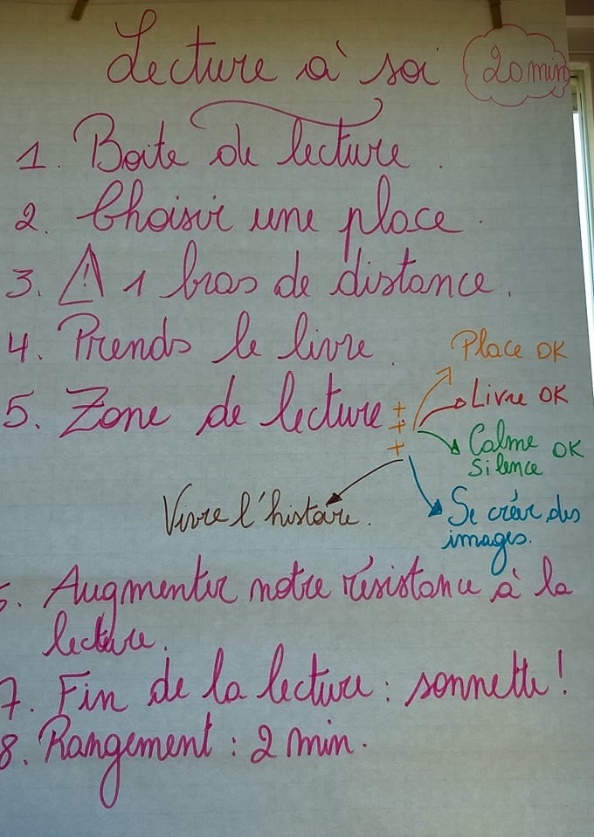 Lecture à soi 20 min
1. Boite de lecture.
2. Choisir une place.
3. ! 1 bras de distance.
4. Prends le livre.
5. Zone de lecture +++
Place OK
Livre OK
Calme
Silence OK
Se créer des
images.
Vivre l'histoire.
6. Augmenter notre résistance à la
lecture.
7. Fin de la lecture : sonnette !
8. Rangement : 2 min.